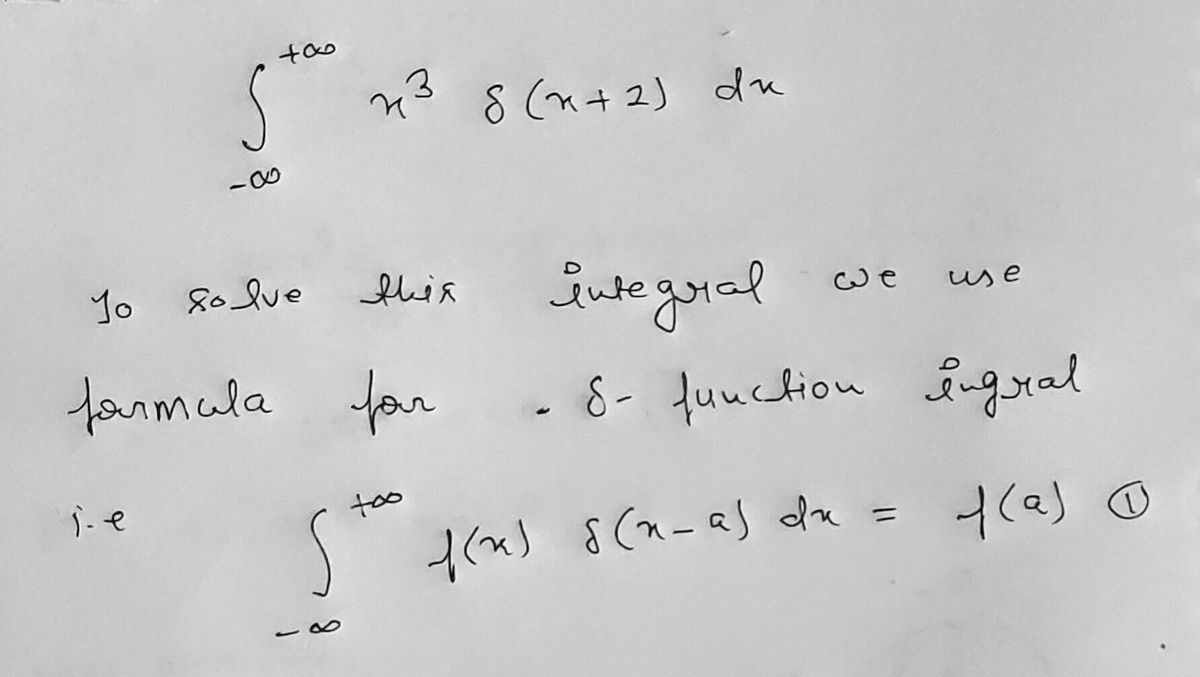 ∫_{-∞}^{+∞} x³ δ(x+2) dx
To solve this integral we use
formula for δ- function ingral
i-e ∫_{-∞}^{+∞} f(x) δ(x-a) dx = f(a) ①